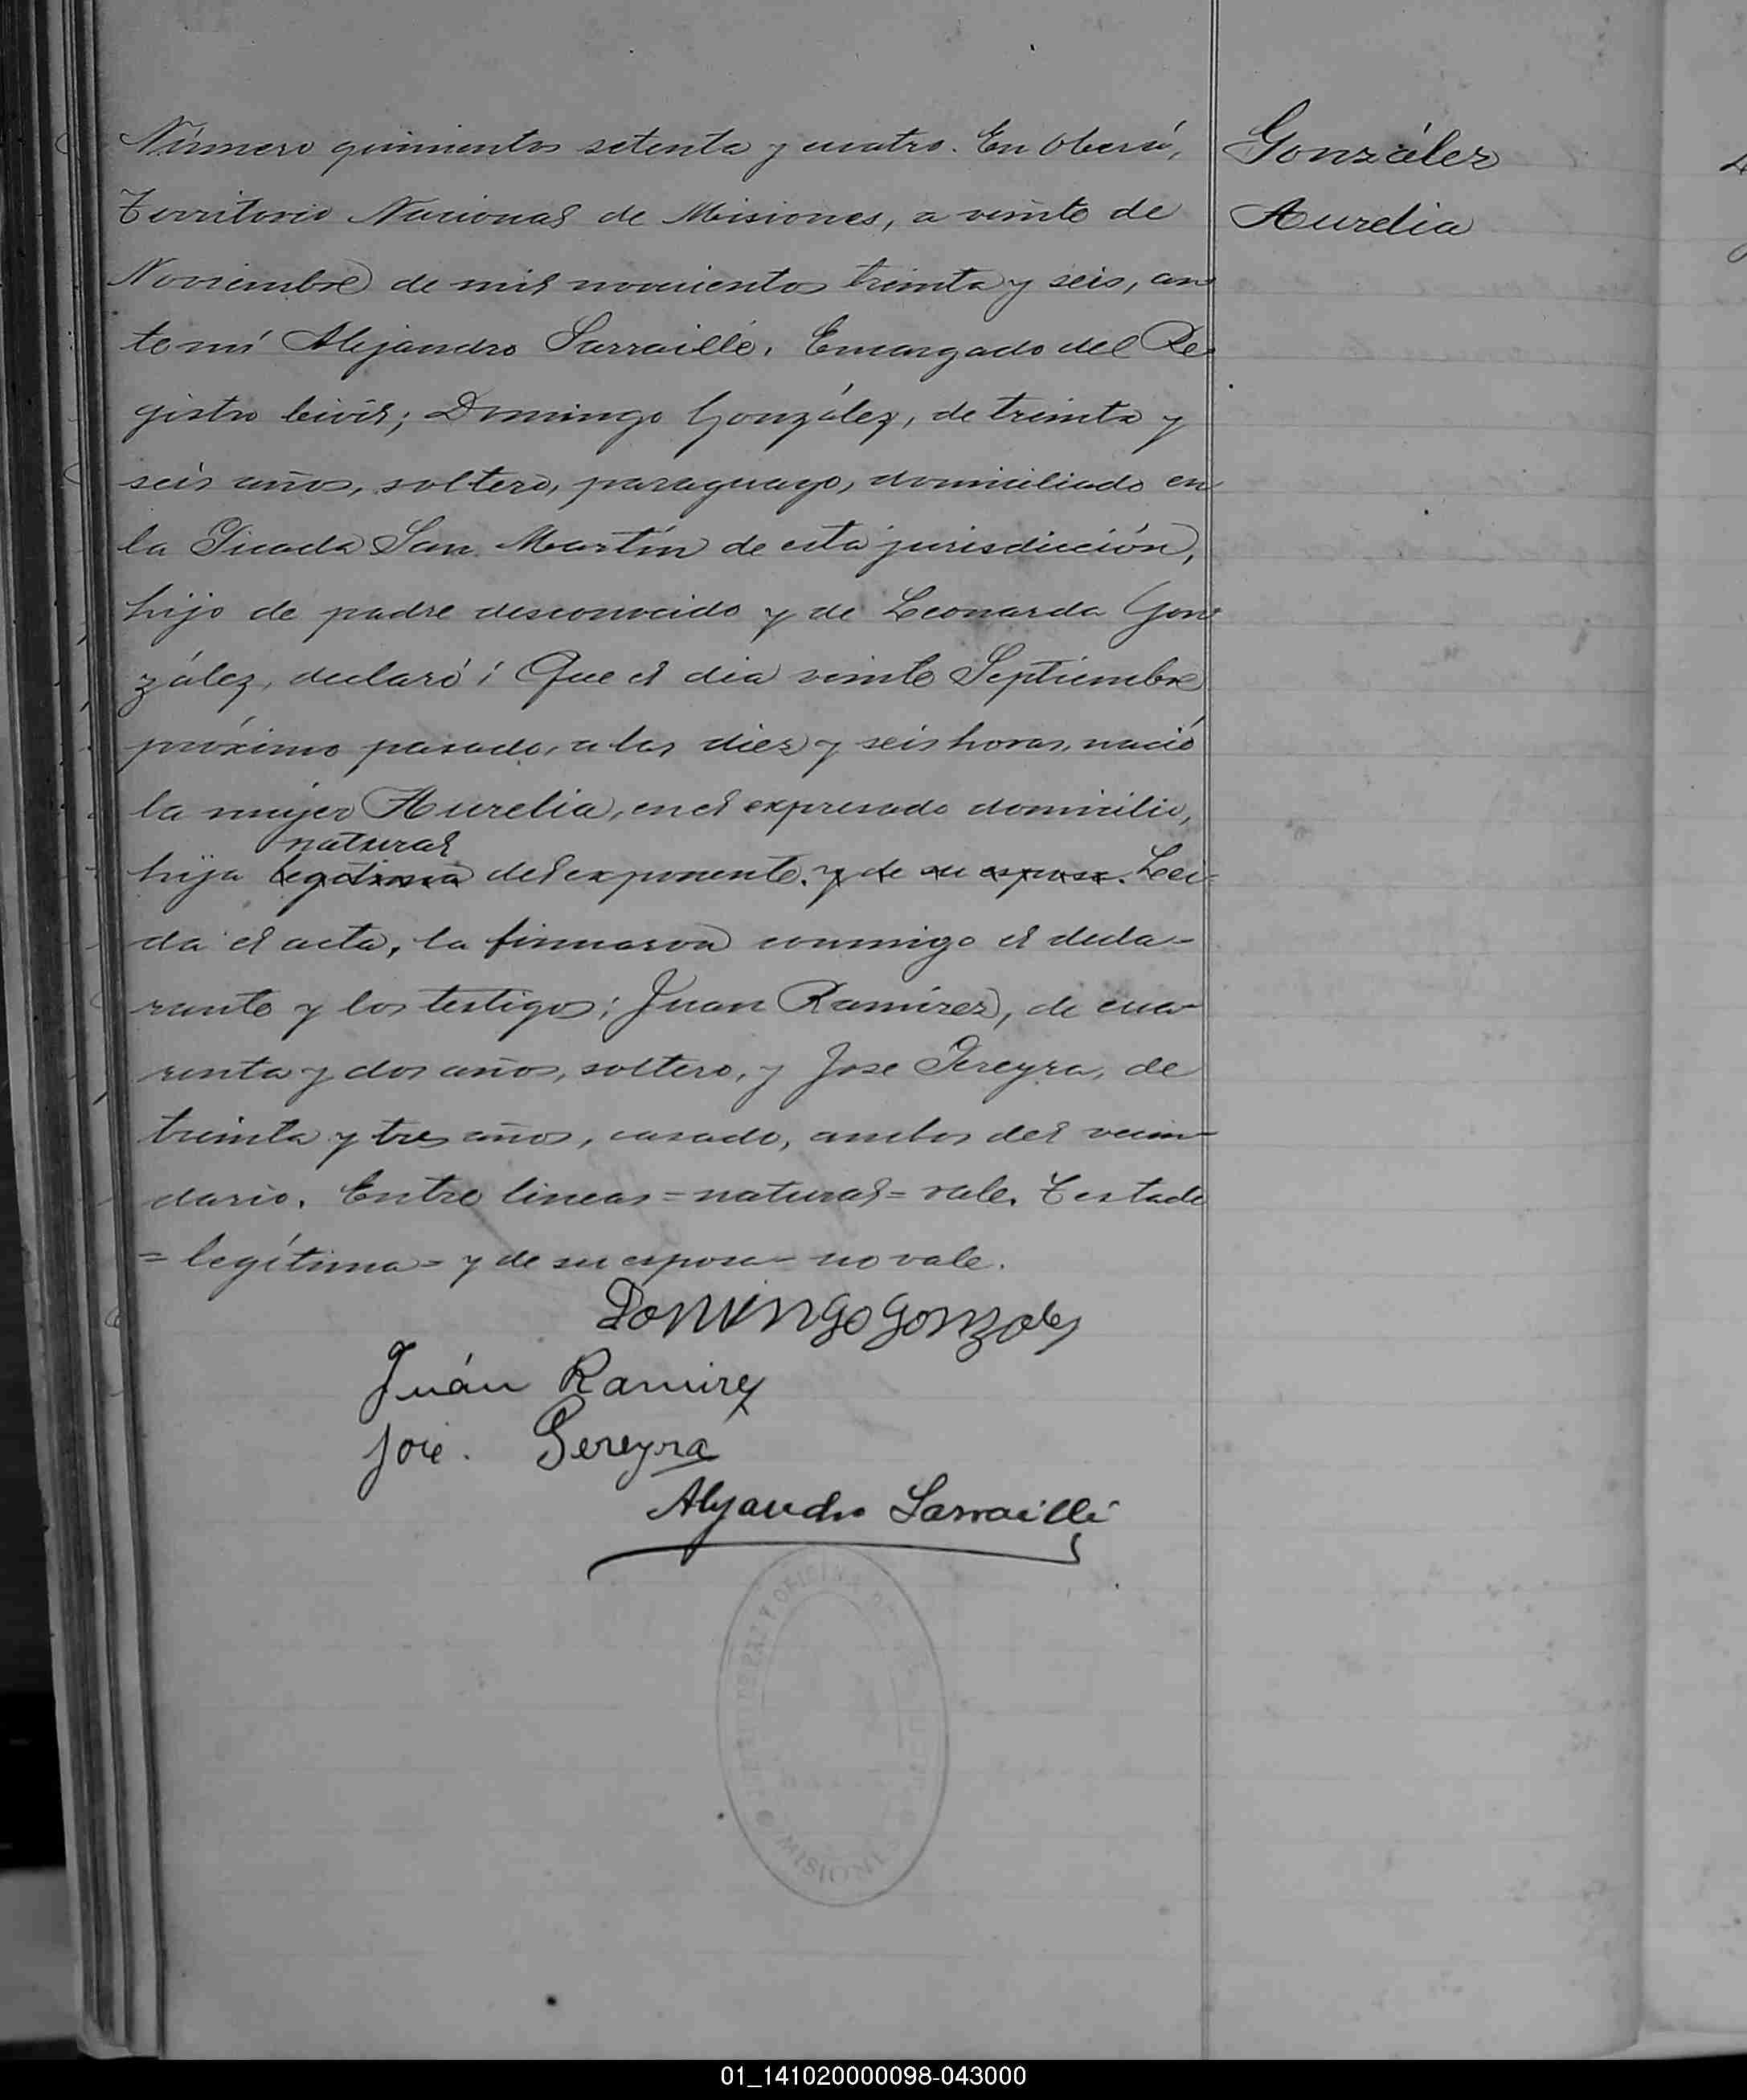 Número quinientos setenta y cuatro. En Oberá,
Territorio Nacional de Misiones, a veinte de
Noviembre de mil novecientos treinta y seis, an
te mí Alejandro Sarraillé, Encargado del Re
gistro Civil; Domingo González, de treinta y
seis años, soltero, paraguayo, domiciliado en
la Picada San Martín de esta jurisdicción,
hijo de padre desconocido y de Leonarda Gon
zález, declaró: Que el día veinte Septiembre
próximo pasado, a las diez y seis horas, nació
la mujer Aurelia, en el expresado domicilio,
natural
hija legítima del exponente. y de su esposa. Leí-
da el acta, la firmaron conmigo el decla-
rante y los testigos: Juan Ramírez, de cua-
renta y dos años, soltero, y Jose Pereyra, de
treinta y tres años, casado, ambos del vecin-
dario. Entre lineas = natural = vale. Testado
= legítima = y de su esposa = no vale.
Domingo Gonzales
Juán Ramirez
José. Pereyra
Alejandro Sarraillé
González
Aurelia
OFICINA
MISIONES
01_141020000098-043000